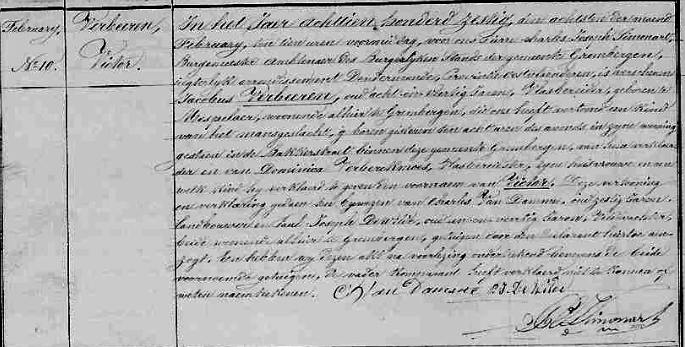 February,
No. 10.
Verbueren,
Victor.
In het Jaer achttien honderd zestig, den achtsten der maend
February, ten tien uren voormiddag, voor ons Pierre Charles Simonart,
Burgemeester Ambtenaer des Burgerlyken Stands der gemeente Grembergen,
regterlyk arrondissement Dendermonde, Provintie Oostvlaenderen, is verschenen
Jacobus Verbueren, oud acht en veertig jaren, Vlasbereider, geboren te
Mespelaer, wonende alhier te Grembergen, die ons heeft vertoond een kind
van het mansgeslacht, geboren gisteren ten acht uren des avonds in zyne wooning
gestaen in de Bakkerstraet binnen deze gemeente Grembergen, van hem verklaer
der en van Dominica Verberckmoes, Vlasbereidster, zyne huisvrouwe en aen
welk kind hy verklaerd te geven den voornaem van Victor. Deze vertooning
en verklaering gedaen ten bywezen van Charles Van Damme, oud zestig jaren
Landbouwer en Paul Joseph De Wilde, oud en veertig jaren,
beide wonende alhier te Grembergen, getuigen door den declarant hiertoe aen
zogt. En hebben wy dezen akt na voorlezing onderteekend nevens de beide
voornoemde getuigen, de vader komparant heeft verklaerd niet te konnen of
weten naemteekenen. C Van Damme P J De Wilde
Simonart